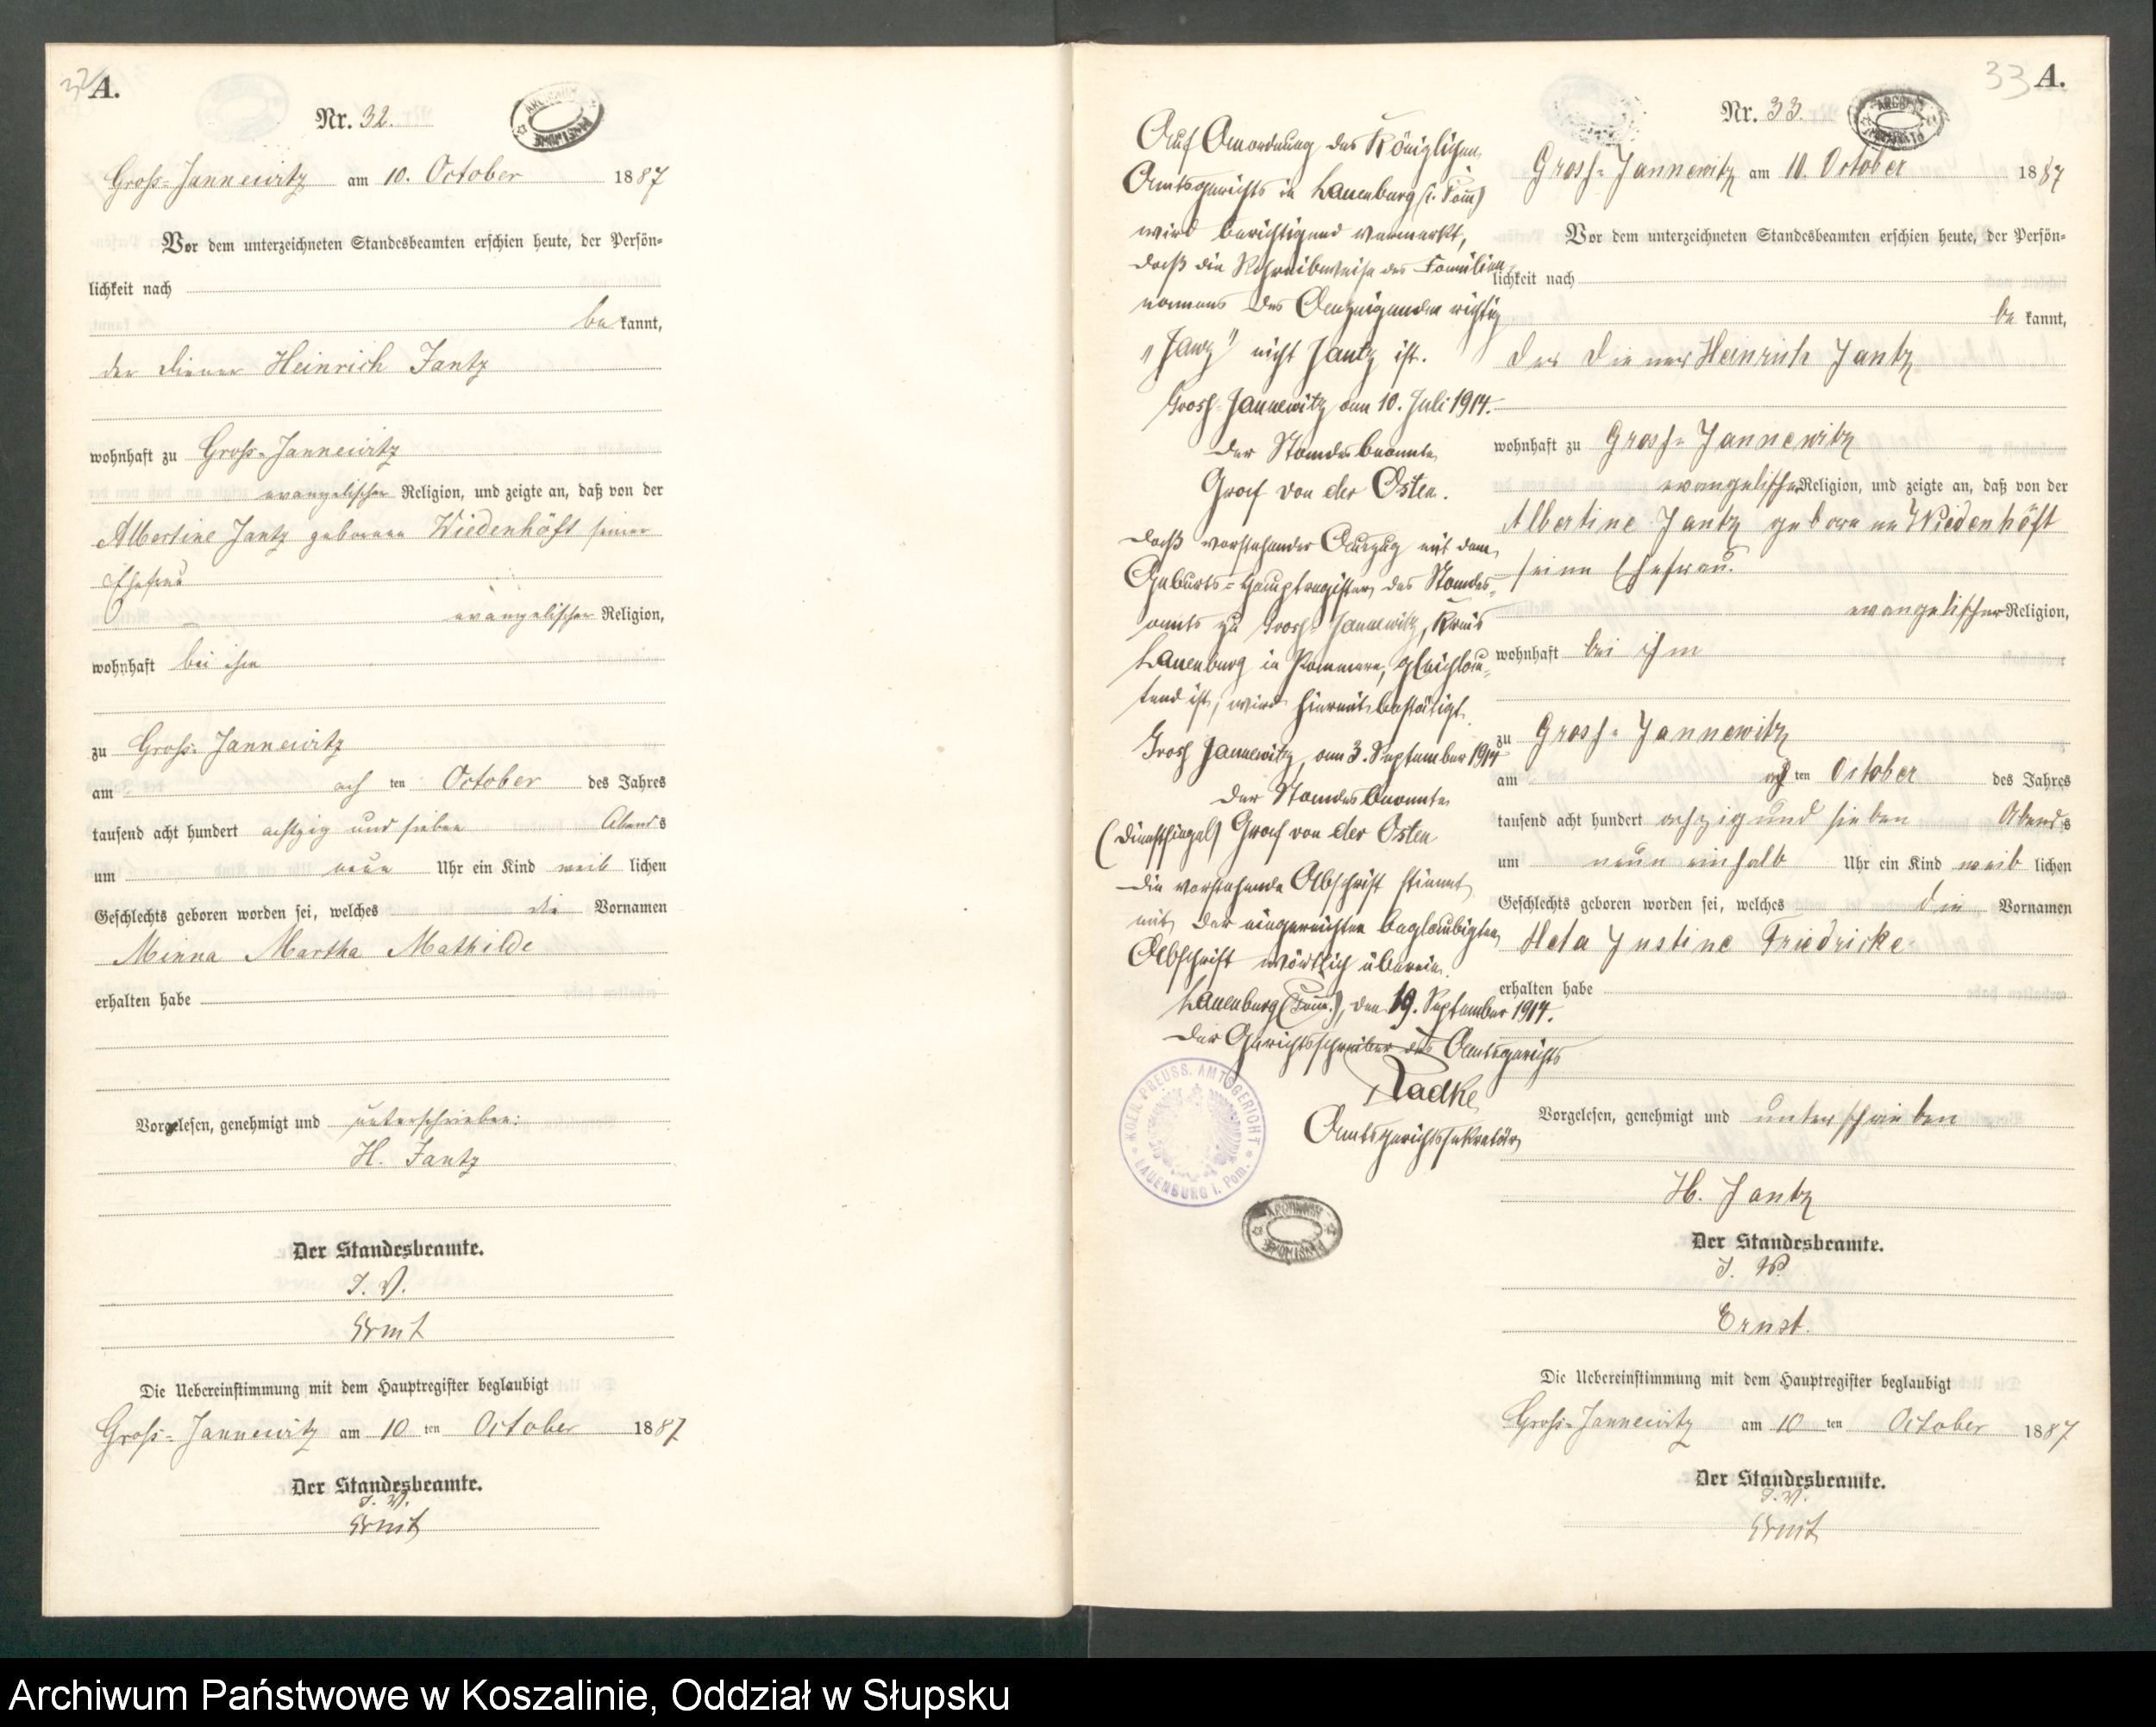 32
A.
Nr. 32.
ARCHIWUM PAŃSTWOWE
Gross-Jannewitz am 10. October 1887
Vor dem unterzeichneten Standesbeamten erschien heute, der Persön-
lichkeit nach
be kannt,
der Diener Heinrich Jantz
wohnhaft zu Gross-Jannewitz
evangelischer Religion, und zeigte an, daß von der
Albertine Jantz geborene Wiedenhöft seiner
Ehefrau
evangelischer Religion,
wohnhaft bei ihm
zu Gross-Jannewitz
am ach ten October des Jahres
tausend acht hundert achtzig und sieben Abends
um neun Uhr ein Kind weib lichen
Geschlechts geboren worden sei, welches die Vornamen
Minna Martha Mathilde
erhalten habe
Vorgelesen, genehmigt und unterschrieben:
H. Jantz
Der Standesbeamte.
I. V.
Ernst
Die Uebereinstimmung mit dem Hauptregister beglaubigt
Gross-Jannewitz am 10 ten October 1887
Der Standesbeamte.
I. V.
Ernst
Auf Anordnung des Königlichen
Amtsgerichts in Lauenburg (i. Pom)
wird berichtigend vermerkt,
daß die Schreibweise des Familien-
namens des Anzeigenden richtig
nicht Jantz ist.
Gross-Jannewitz am 10. Juli 1914.
Der Standesbeamte
Graf von der Osten.
Daß vorstehender Auszug mit dem
Geburts-Hauptregister des Standes-
amts zu Gross-Jannewitz, Kreis
Lauenburg in Pommern, gleichlau-
tend ist, wird hiermit bestätigt.
Gross Jannewitz, am 3. September 1914
Der Standesbeamte
(Dienstsiegel) Graf von der Osten
Die vorstehende Abschrift stimmt
mit der eingereichten beglaubigten
Abschrift wörtlich überein.
Lauenburg (Pom.), den 19. September 1914.
Der Gerichtsschreiber des Amtsgerichts
Radke
Amtsgerichtssekretär
KÖNIGL. PREUSS. AMTSGERICHT
LAUENBURG i. Pom.
ARCHIWUM PAŃSTWOWE
33 A.
Nr. 33.
ARCHIWUM PAŃSTWOWE
Gross-Jannewitz am 10. October 1887
Vor dem unterzeichneten Standesbeamten erschien heute, der Persön-
lichkeit nach
be kannt,
der Diener Heinrich Jantz
wohnhaft zu Gross-Jannewitz
evangelischer Religion, und zeigte an, daß von der
Albertine Jantz geborene Wiedenhöft
seine Ehefrau.
evangelischer Religion,
wohnhaft bei ihm
zu Gross-Jannewitz
am ach ten October des Jahres
tausend acht hundert achzig und sieben Abends
um neun einhalb Uhr ein Kind weib lichen
Geschlechts geboren worden sei, welches die Vornamen
Meta Justine Friedricke
erhalten habe
Vorgelesen, genehmigt und unterschrieben
H. Jantz
Der Standesbeamte.
I. V.
Ernst.
Die Uebereinstimmung mit dem Hauptregister beglaubigt
Gross-Jannewitz am 10 ten October 1887
Der Standesbeamte.
I. V.
Ernst
Archiwum Państwowe w Koszalinie, Oddział w Słupsku